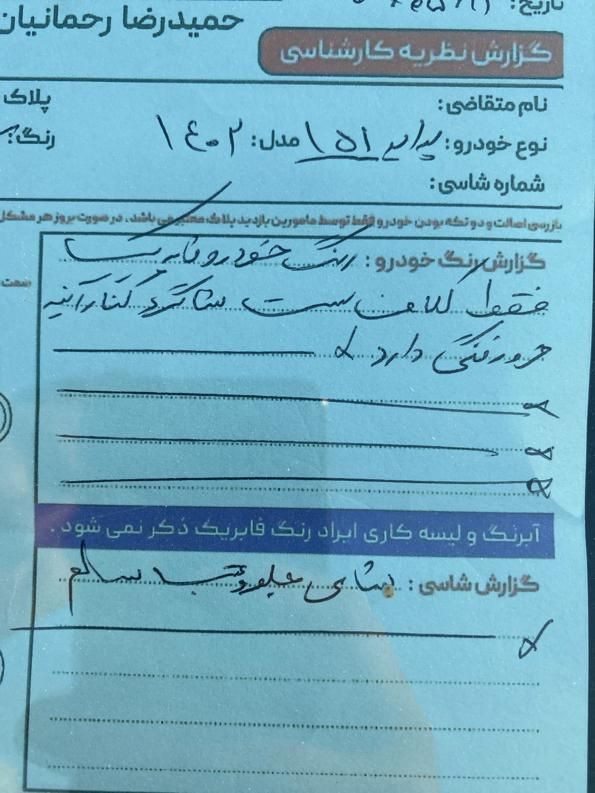 تاریخ:
حمیدرضا رحمانیان
گزارش نظریه کارشناسی
نام متقاضی:
پلاک
نوع خودرو: پراید ۱۵۱ مدل: ۱۴۰۲ رنگ:
شماره شاسی:
بازرسی اصالت و دو تکه بودن خودرو فقط توسط مامورین بازدید پلاک معتبر می باشد. در صورت بروز هر مشکل
گزارش رنگ خودرو: رنگ خودرو فابریک
فقط گلگیر سمت شاگرد کنار آینه
فرورفتگی دارد
آبرنگ و لیسه کاری ایراد رنگ فابریک ذکر نمی شود.
گزارش شاسی: شاسی جلو و عقب سالم